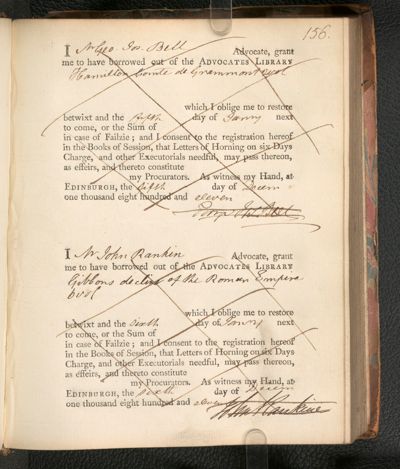 156.
I Mr Geo. Jos. Bell Advocate, grant
me to have borrowed out of the ADVOCATES LIBRARY
Hamilton Comte de Grammont
which I oblige me to restore
betwixt and the fifth day of Janry next
to come, or the Sum of
in case of Failzie; and I consent to the registration hereof
in the Books of Session, that Letters of Horning on six Days
Charge, and other Executorials needful, may pass thereon,
as effeirs, and thereto constitute
my Procurators. As witness my Hand, at
EDINBURGH, the fifth day of Decem
one thousand eight hundred and eleven
I Mr John Rankin Advocate, grant
me to have borrowed out of the ADVOCATES LIBRARY
Gibbons decline of the Roman Empire
6 vol
which I oblige me to restore
betwixt and the sixth day of Janry next
to come, or the Sum of
in case of Failzie; and I consent to the registration hereof
in the Books of Session, that Letters of Horning on six Days
Charge, and other Executorials needful, may pass thereon,
as effeirs, and thereto constitute
my Procurators. As witness my Hand, at
EDINBURGH, the sixth day of Decem
one thousand eight hundred and eleven
John Rankine